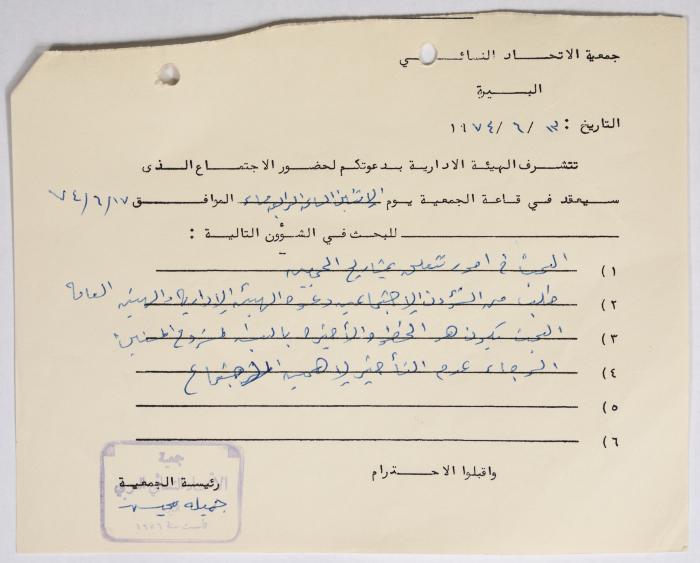 جمعية الاتحاد النسائي
البيرة
التاريخ : ١٣ / ٦ / ١٩٧٤
تتشرف الهيئة الادارية بدعوتكم لحضور الاجتماع الذى
سيعقد في قاعة الجمعية يوم الاثنين الساعة الرابعة مساء الموافق ٧٤/٦/١٧
للبحث في الشؤون التالية :
١) البحث في امور تتعلق بمشاريع الجمعيه
٢) طلب من الشؤون الاجتماعيه دعوة الهيئة الإدارية والهيئه العامة
٣) البحث يكون هو الخطوة الأخيرة بالبدء لمشروع المسنين
٤) الرجاء عدم التأخير لاهمية الاجتماع
٥)
٦)
واقبلوا الاحترام
رئيسة الجمعية
جميله
جمعية
الاتحاد النسائي العربي